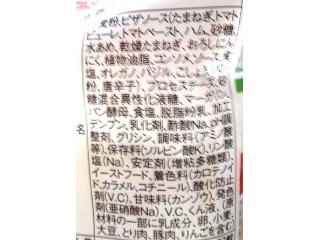 麦粉、ピザソース(たまねぎ、トマト
ピューレ、トマトペースト、ハム、砂糖、
水あめ、乾燥たまねぎ、おろしにん
にく、植物油脂、コンソメソース、食
塩、オレガノ、バジル、こしょう
粉、唐辛子)、プロセスチーズ、
糖混合異性化液糖、マーガリン、
パン酵母、食塩、脱脂粉乳、加工
デンプン、乳化剤、酢酸Na、pH調
整剤、グリシン、調味料(アミノ酸
等)、保存料(ソルビン酸K)、リン酸
塩(Na)、安定剤(増粘多糖類)、
イーストフード、着色料(カロテノイ
ド、カラメル、コチニール)、酸化防止
剤(V.C)、甘味料(カンゾウ)、発色
剤(亜硝酸Na)、V.C、くん液、(原
材料の一部に乳成分、卵、小麦、
大豆、とり肉、豚肉、りんごを含む)
名